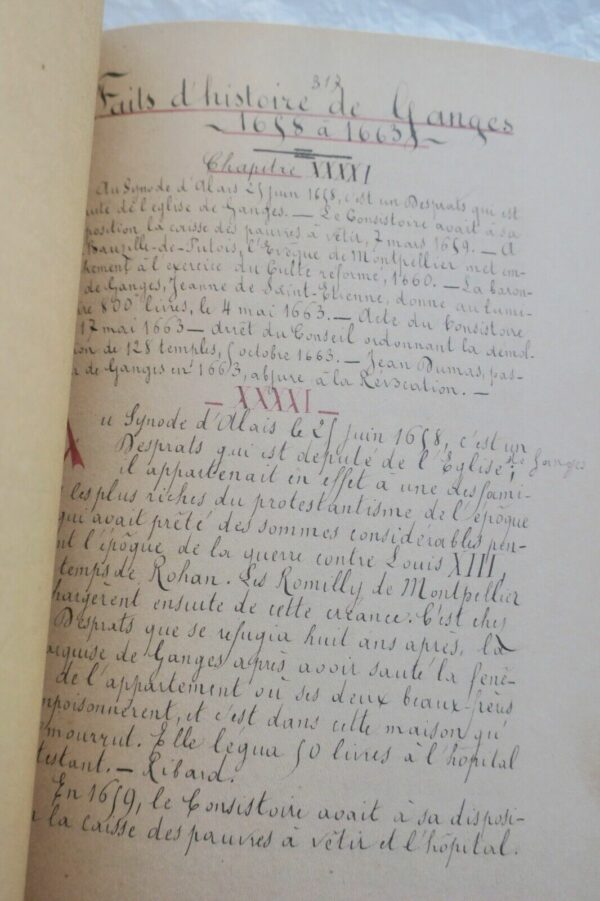 317
Faits d'histoire de Ganges
~ 1658 à 1663 ~
Chapitre XXXXI
Au Synode d'Alais 25 juin 1658, c'est un Desprats qui est
uté de l'église de Ganges. — Le Consistoire avait à sa
position la caisse des pauvres à vêtir, 7 mars 1659. — A
Bauzille-de-Putois, l'Evêque de Montpellier met em-
chement à l'exercice du Culte réformé, 1660. — La baron-
de Ganges, Jeanne de Saint-Etienne, donne au Lumi-
re 800 livres, le 4 mai 1663. — Acte du Consistoire,
17 mai 1663 — arrêt du Conseil ordonnant la démol-
ion de 128 temples, 5 octobre 1663. — Jean Dumas, pas-
r de Ganges en 1663, abjure à la Révocation. —
— XXXXI —
u Synode d'Alais le 25 juin 1658, c'est un
Desprats qui est député de l'Église de Ganges;
il appartenait en effet à une des fami-
les plus riches du protestantisme de l'époque
qui avait prêté des sommes considérables pen-
nt l'époque de la guerre contre Louis XIII,
temps de Rohan. Les Romilly de Montpellier
hargèrent ensuite de cette créance. C'est chez
Desprats que se refugia huit ans après, la
arquise de Ganges après avoir sauté la fenê-
de l'appartement où ses deux beaux-frères
mpoisonnèrent, et c'est dans cette maison qu'
mourrut. Elle légua 50 livres à l'hôpital
testant. — Ribard.
En 1659, le Consistoire avait à sa disposi-
la caisse des pauvres à vêtir et l'hôpital.